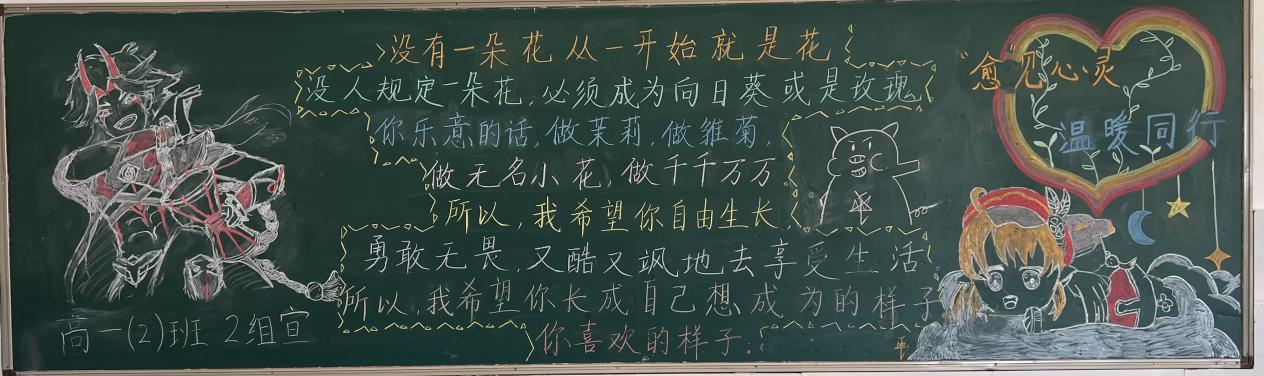 没有一朵花从一开始就是花
没人规定一朵花，必须成为向日葵或是玫瑰
你乐意的话，做茉莉，做雏菊，
做无名小花，做千千万万。
所以，我希望你自由生长，
勇敢无畏，又酷又飒地去享受生活
所以，我希望你长成自己想成为的样子
你喜欢的样子.
“愈”见心灵
温暖同行
高一(2)班 2组宣